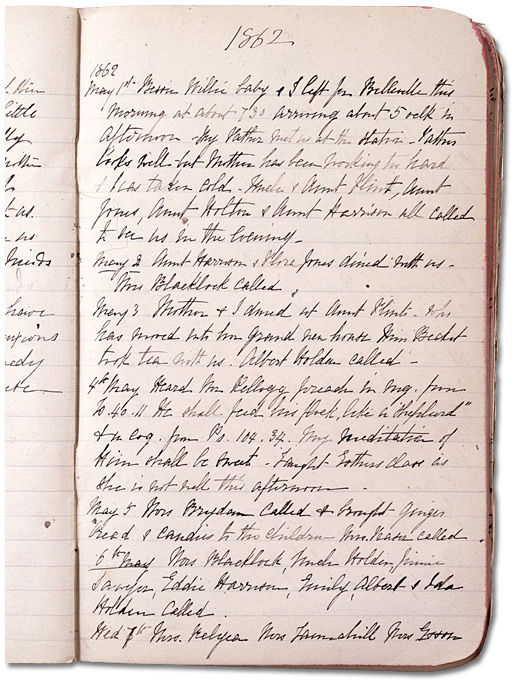 1862
1862
May 1st Bessie Willie baby & I left for Belleville this
morning at about 7.30 arriving about 5 oclk in
afternoon - My Father met us at the station - Father
looks well but Mother has been working too hard
& has taken cold - Uncle & Aunt Flint, Aunt
Jones, Aunt Holton & Aunt Harrison all called
to see us in the Evening -
May 2 Aunt Harrison & Flora Jones dined with us -
Mrs Blacklock called
May 3 Mother & I dined at Aunt Flints - who
has moved into her grand new house Miss Becket
took tea with us. Albert Holden called -
4th May Heard Mr Kellogg preach in mg. from
Is. 40.11 He shall feed his flock like a "Shepherd"
& in evg. from Ps. 104.34. My meditation of
Him shall be sweet - Taught Esthers class as
she is not well this afternoon
May 5 Mrs Brydon called & brought Ginger
Bread & candies to the children Mrs called
6th May Mrs Blacklock, Uncle Holden, Jinnie
Sawyer Eddie Harrison, Emily, Albert & Ida
Holden called.
Wed 7th Mrs. Relyea Mrs Tannahill Mrs
little
us.
us
friends
have